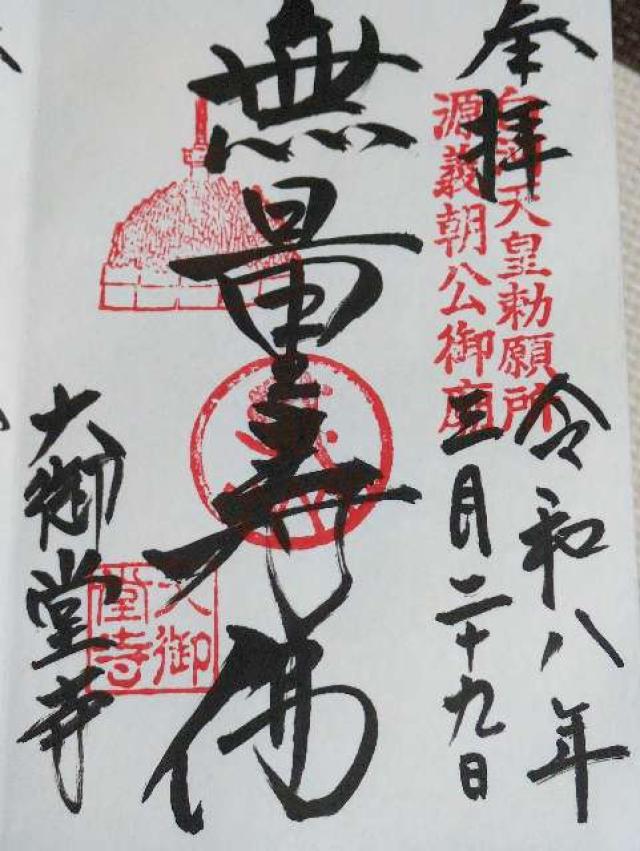 奉拝
白河天皇勅願所
源義朝公御廟
令和八年
三月二十九日
無量寿佛
大御堂寺
大御堂寺